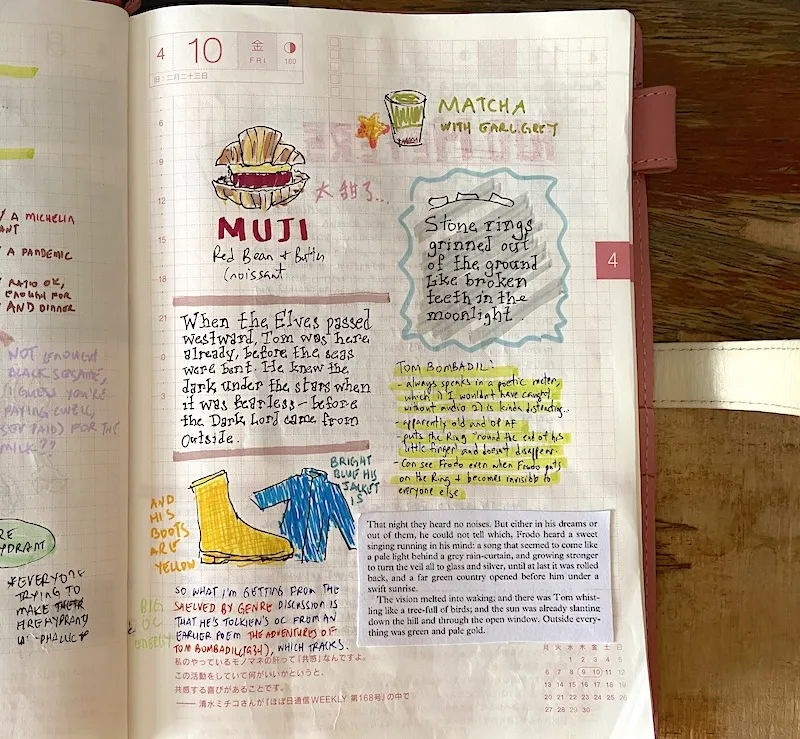 Y A MICHELIN
ANT
Y A PANDEMIC
RATIO OK,
ENOUGH FOR
AND DINNER
NOT ENOUGH
BLACK SESAME,
I GUESS YOU'RE
PAYING (WELL,
PAID) FOR THE
MILK??
RE
HYDRANT
*EVERYONE
TRYING TO
MAKE THEIR
FIREHYDRANT
4 10 金
FRI
100
旧:二月二十三日
MATCHA
WITH EARL GREY
太甜了...
MUJI
Red Bean + Butter
Croissant
Stone rings
grinned out
of the ground
like broken
teeth in the
moonlight.
6
9
12
15
18
21
0
3
4
When the Elves passed
westward, Tom was here
already, before the seas
were bent. He knew the
dark under the stars when
it was fearless - before
the Dark Lord came from
Outside.
TOM BOMBADIL:
- always speaks in a poetic meter,
which 1) I wouldn't have caught
without audio 2) is kinda distracting..
- apparently old and OP AF
- puts the Ring "round the end of his
little finger" and doesn't disappear.
- Can see Frodo even when Frodo puts
on the Ring + becomes invisible to
everyone else
BRIGHT
BLUE HIS
JACKET
IS
AND
HIS
BOOTS
ARE
YELLOW
That night they heard no noises. But either in his dreams or
out of them, he could not tell which, Frodo heard a sweet
singing running in his mind: a song that seemed to come like
a pale light behind a grey rain-curtain, and growing stronger
to turn the veil all to glass and silver, until at last it was rolled
back, and a far green country opened before him under a
swift sunrise.
The vision melted into waking; and there was Tom whist-
ling like a tree-full of birds; and the sun was already slanting
down the hill and through the open window. Outside every-
thing was green and pale gold.
BIG
OC
ENERGY
SO WHAT I'M GETTING FROM THE
SHELVED BY GENRE DISCUSSION IS
THAT HE'S TOLKIEN'S OC FROM AN
EARLIER POEM THE ADVENTURES OF
TOM BOMBADIL (1934), WHICH TRACKS.
私のやっているモノマネの肝って『共感』なんですよ。
この活動をしていて何がいいかというと、
共感する喜びがあることです。
── 清水ミチコさんが『ほぼ日通信WEEKLY 第168号』の中で
月 火 水 木 金 土 日
1 2 3 4 5
6 7 8 9 10 11 12
13 14 15 16 17 18 19
20 21 22 23 24 25 26
27 28 29 30